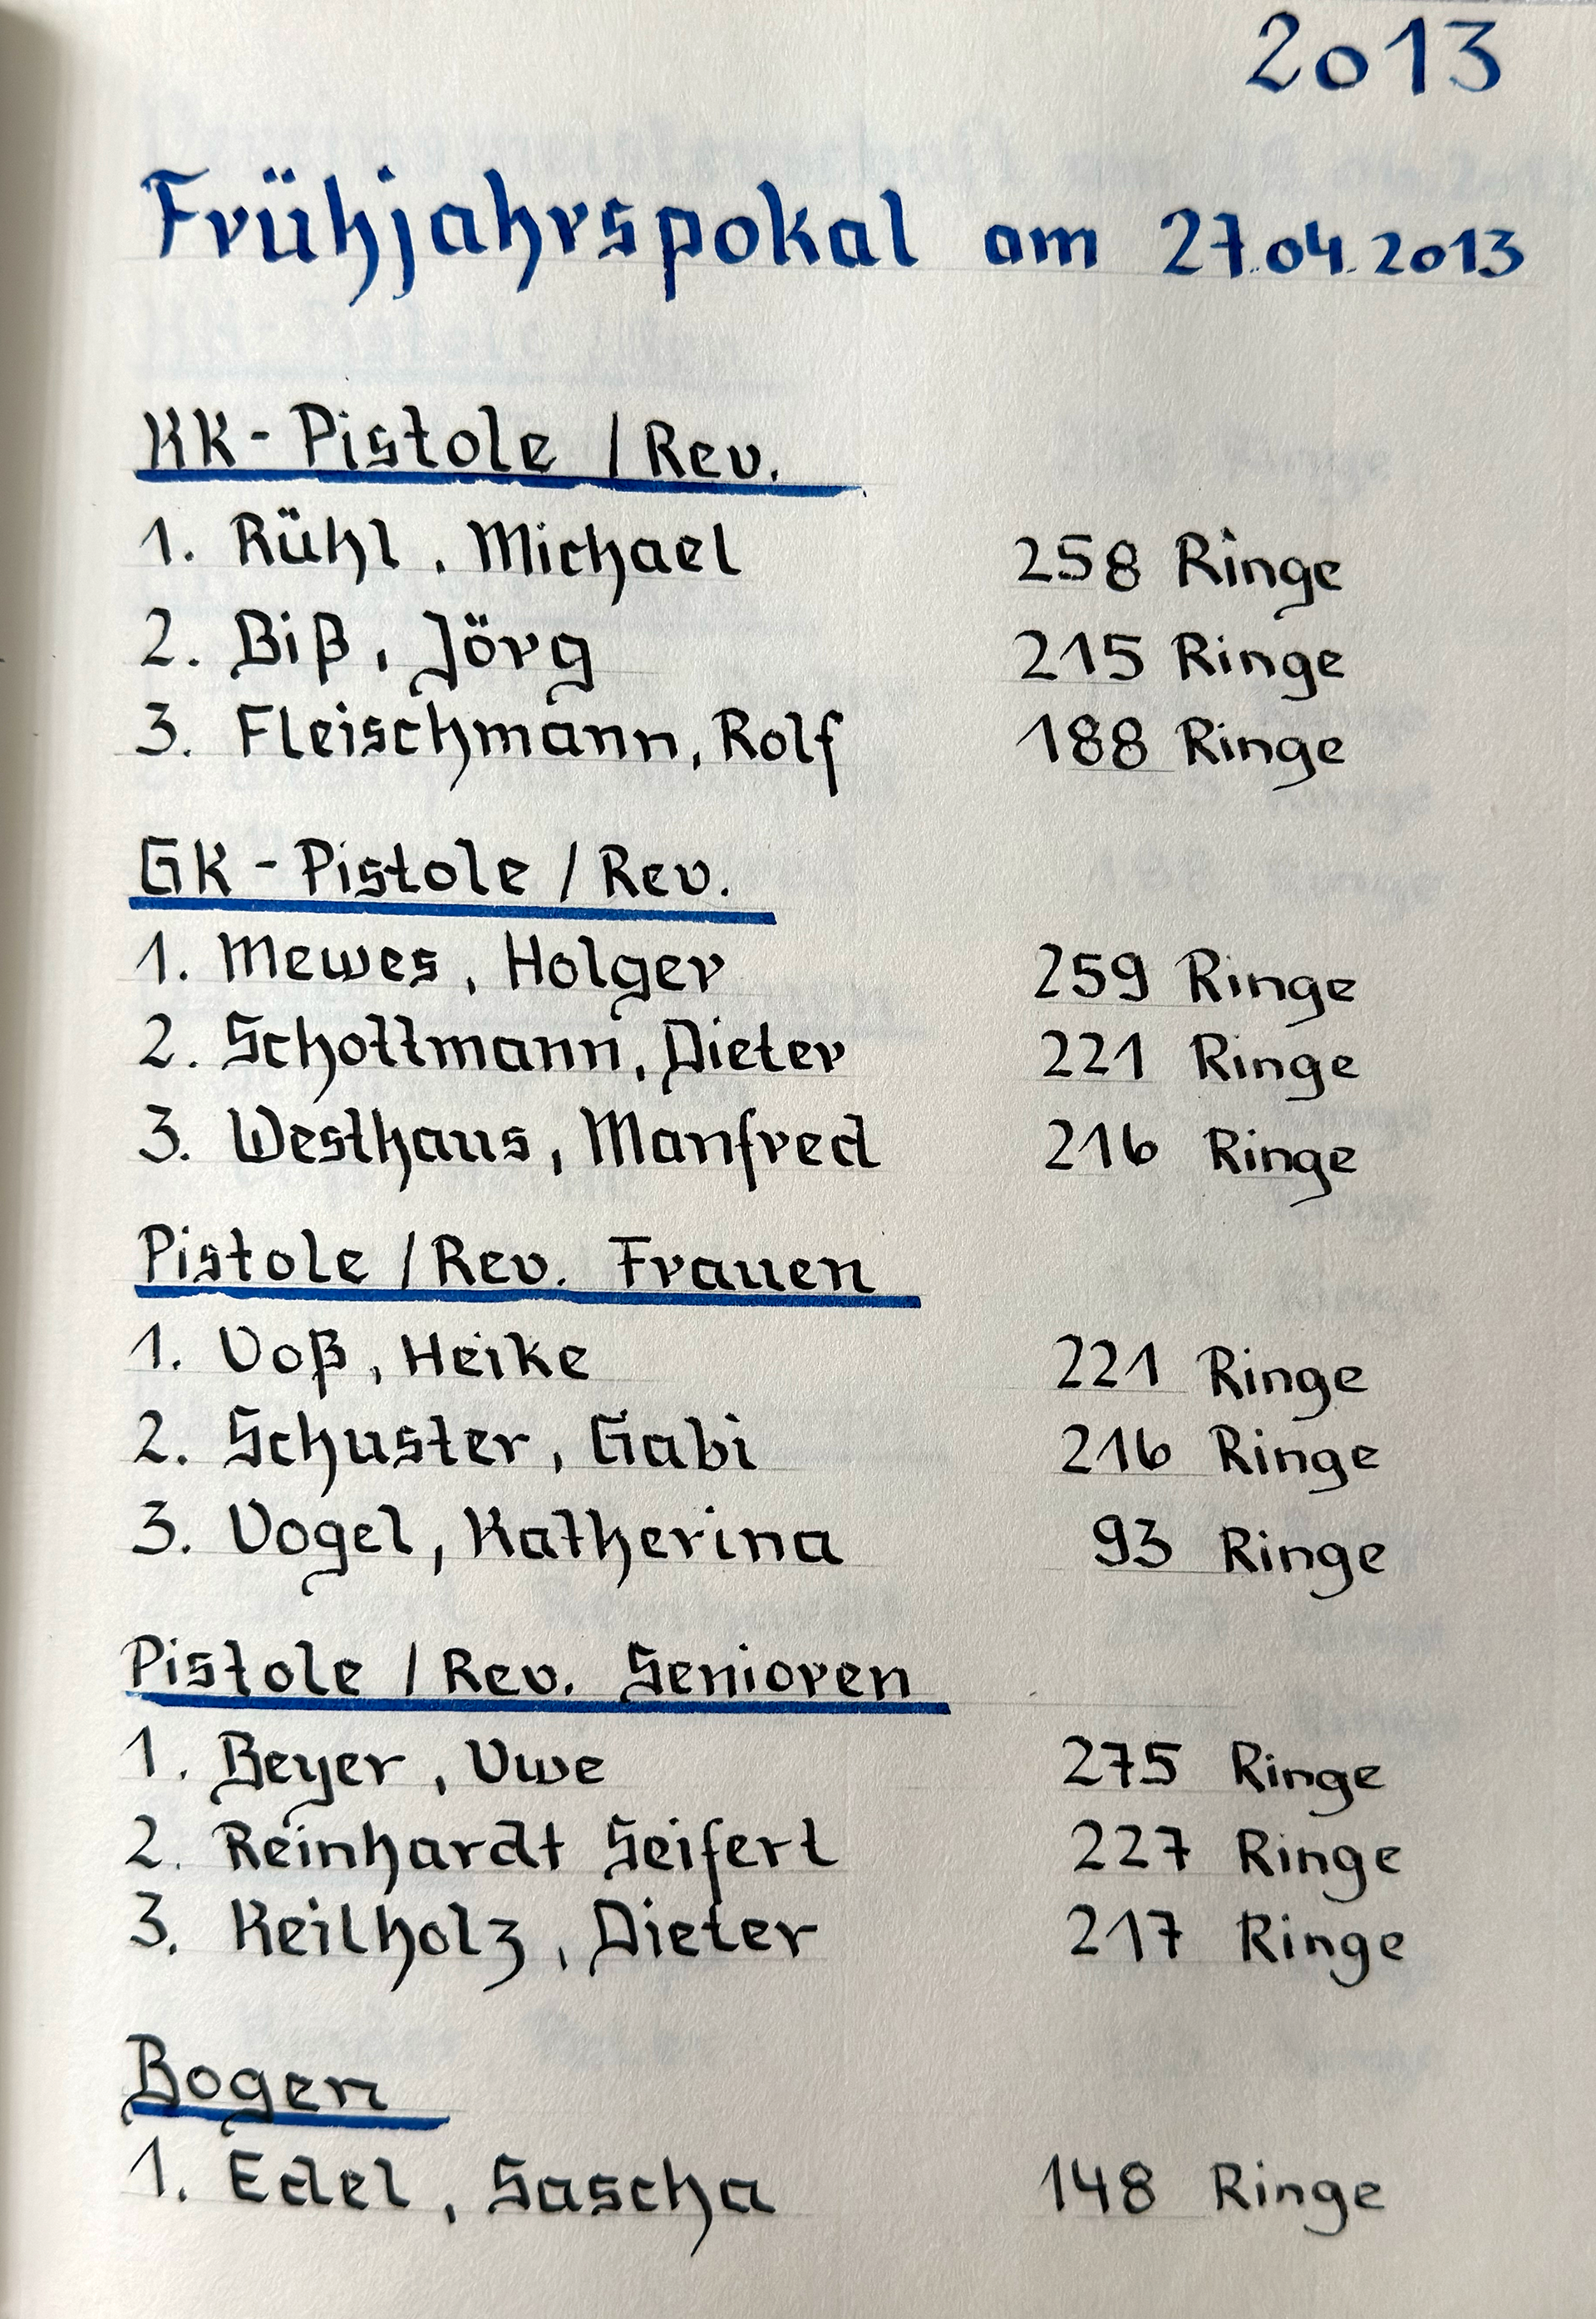 2013
Frühjahrspokal am 27.04.2013
KK-Pistole / Rev.
1. Rühl, Michael 258 Ringe
2. Biß, Jörg 215 Ringe
3. Fleischmann, Rolf 188 Ringe
GK-Pistole / Rev.
1. Mewes, Holger 259 Ringe
2. Schottmann, Dieter 221 Ringe
3. Westhaus, Manfred 216 Ringe
Pistole / Rev. Frauen
1. Voß, Heike 221 Ringe
2. Schuster, Gabi 216 Ringe
3. Vogel, Katherina 93 Ringe
Pistole / Rev. Senioren
1. Beyer, Uwe 275 Ringe
2. Reinhardt Seifert 227 Ringe
3. Keilholz, Dieter 217 Ringe
Bogen
1. Edel, Sascha 148 Ringe